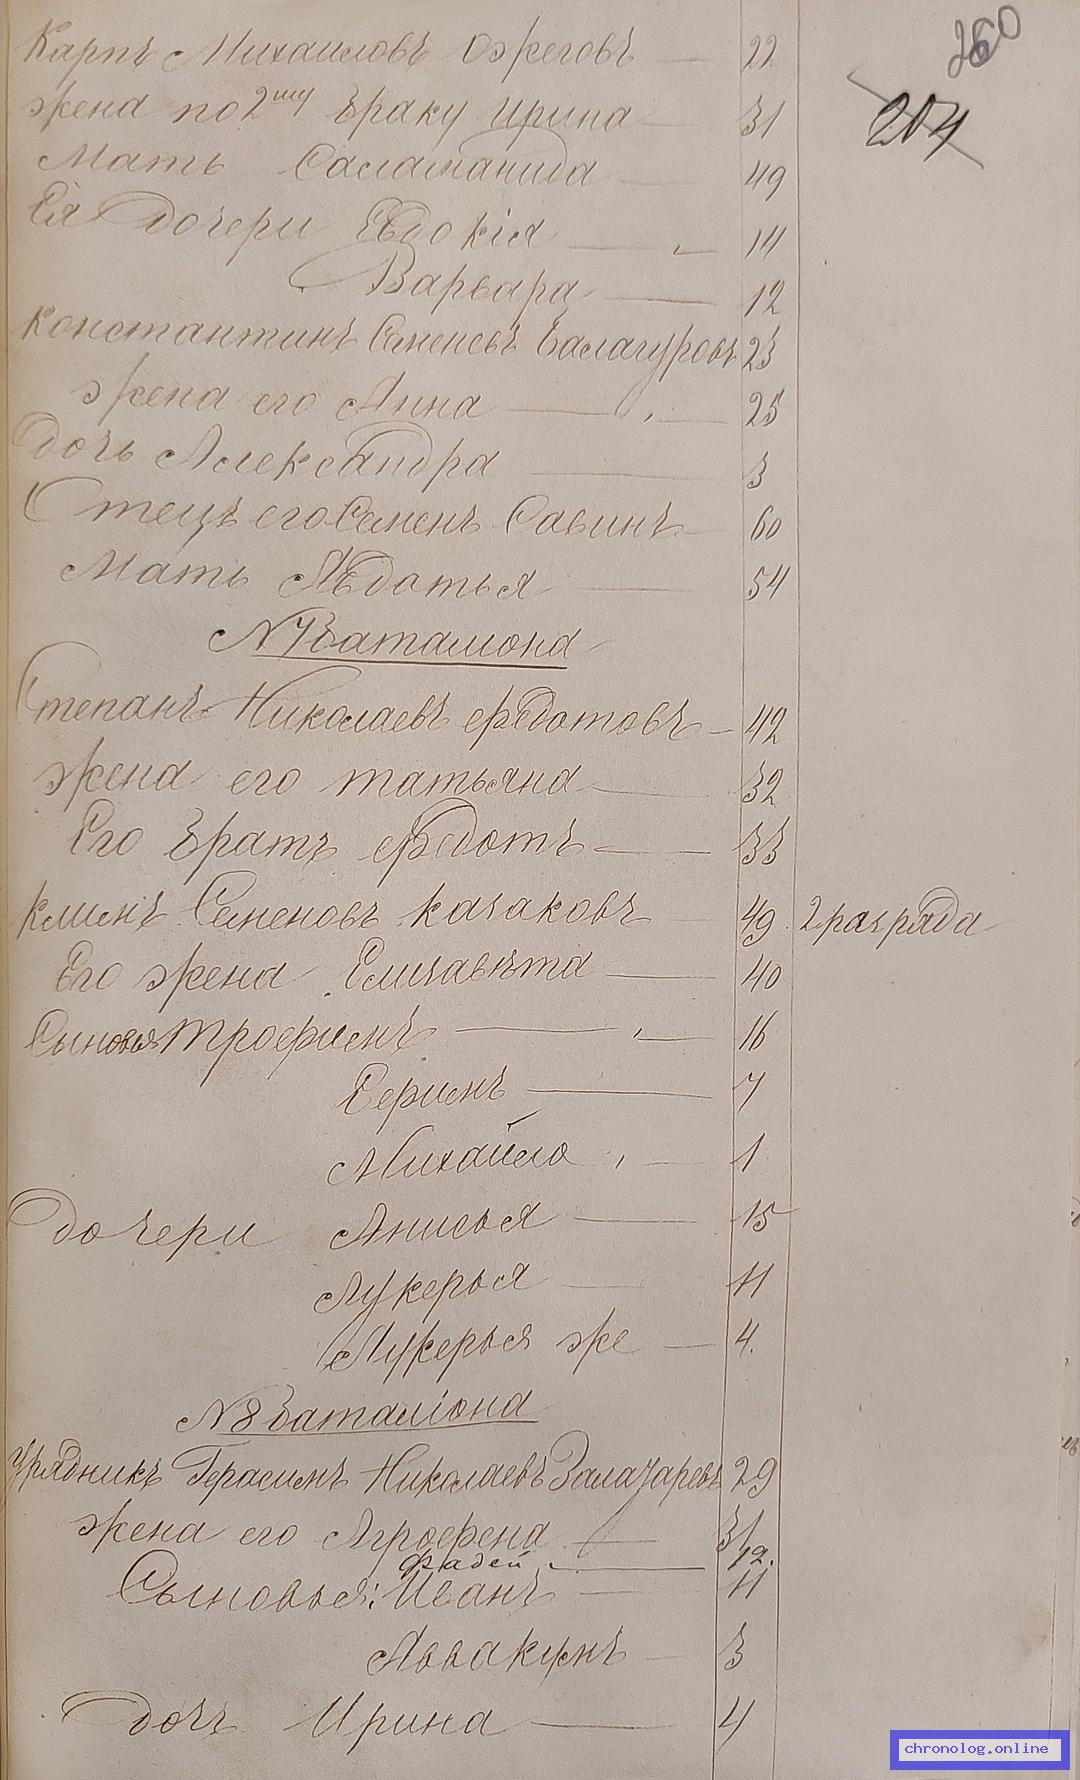 260
204
Карпъ Михаиловъ Ожеговъ — 22
жена по 2му браку Ирина — 31
Мать Саламанида — 49
Ея дочери Евдокія — 14
Варвара — 12
Константинъ Семеновъ Балагуровъ 23
жена его Анна — 25
дочь Александра — 3
Отецъ его Семенъ Савинъ — 60
Мать Авдотья — 54
N7 Баталиона
Степанъ Николаевъ Федотовъ — 42
жена его татьяна — 32
Его братъ Федотъ — 33
Климъ Семеновъ Казаковъ — 49 2 разряда
Его жена Елизавѣта — 40
Сыновья Трофимъ — 16
Ефимъ — 7
Михайло — 1
дочери Анисья — 15
Лукерья — 11
Лукерья же — 4.
N8 Баталіона
Урядникъ Герасимъ Николаевъ Залазаревъ 29
жена его Агрофена — 31
Фадей — 12.
Сыновья: Иванъ — 11
Аввакумъ — 3
дочь Ирина — 4
chronolog.online